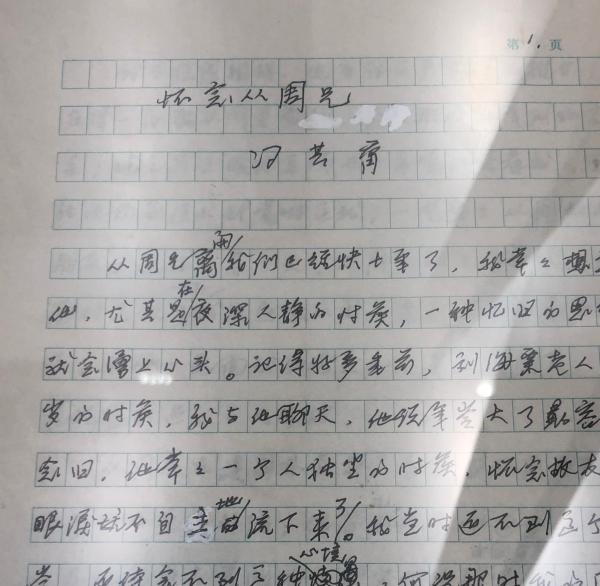 第1.页
怀念从周兄
冯其庸
从周兄离开我们已经快十年了，我常常想
他，尤其是在夜深人静的时候，一种忆旧的思
就会涌上心头。记得好多年前，刘海粟老人
岁的时候，我与他聊天，他说年岁大了最容
念旧，他常常一个人独坐的时候，怀念故友
眼泪就不自主地流下来了。我当时还不到这个
体会不到这种心境，何况那时我